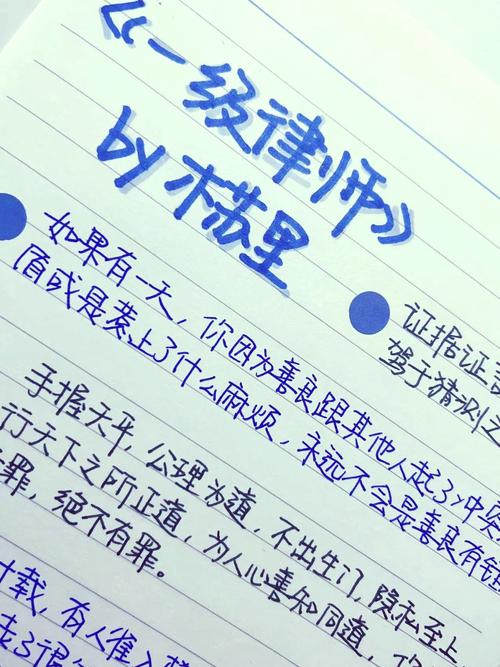 《一级律师》
by 木苏里
如果有一天，你因为善良跟其他人起了冲突
盾或是惹上了什么麻烦，永远不会是善良有错
证据证
驾于猜测之
手握天平，公理为道，不出生门，隐私至上
行天下之所正道，为人心善知同道，
罪，绝不有罪。
载，有人准入